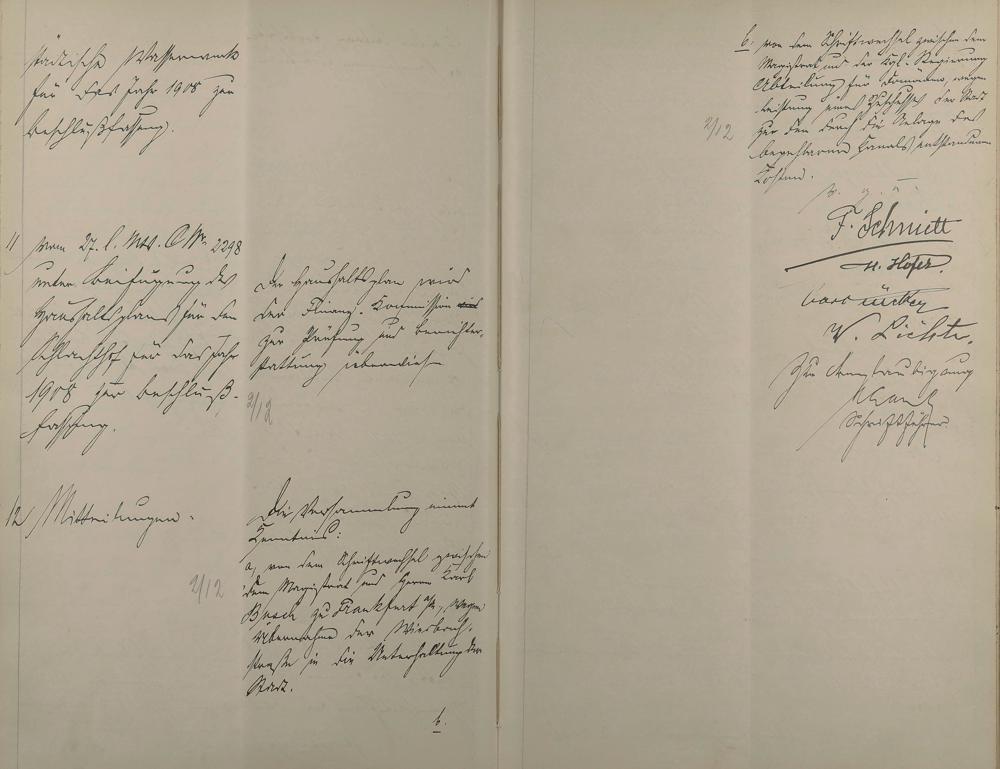 städtische Wasserwerk
für das Jahr 1908 zur
Beschlußfassung.
11 vom 27. l. Mts. C.Nr. 2298
unter Beifügung des
Haushaltsplans für den
Schlachthof für das Jahr
1908 zur Beschluß-
fassung.
Der Haushaltsplan wird
der Finanz-Kommission
zur Prüfung und Berichter-
stattung überwiesen
2/12
12 Mitteilungen.
Die Versammlung nimmt
Kenntnis:
a, von dem Schriftwechsel zwischen
dem Magistrat und Herrn Karl
Busch zu Frankfurt a/M, wegen
Übernahme der
straße in die Unterhaltung der
Stadt.
2/12
b.
b. von dem Schriftwechsel zwischen dem
Magistrat und der Kgl. Regierung
Abteilung für Domänen, wegen
Leistung eines Zuschusses der Stadt
zu den durch die Anlage des
Kanals entstandenen
Kosten.
2/12
v. g. u.
F. Schmidt
H. Hofer.
W. Lichte.
Zur Beglaubigung
Schriftführer